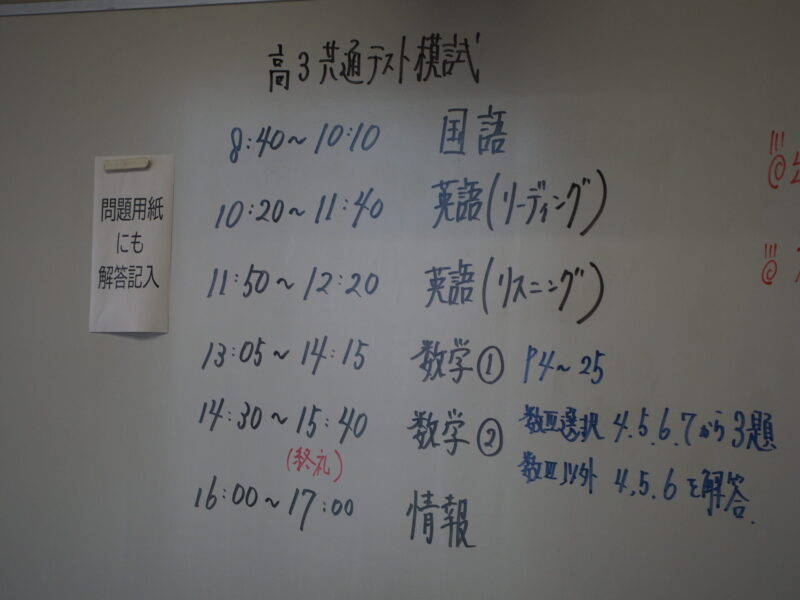 高3共通テスト模試
8:40〜10:10 国語
10:20〜11:40 英語(リーディング)
11:50〜12:20 英語(リスニング)
13:05〜14:15 数学① P4〜25
14:30〜15:40 数学② 数Ⅲ選択 4.5.6.7から3題
数Ⅲ以外 4.5.6を解答.
(終礼)
16:00〜17:00 情報
問題用紙
にも
解答記入